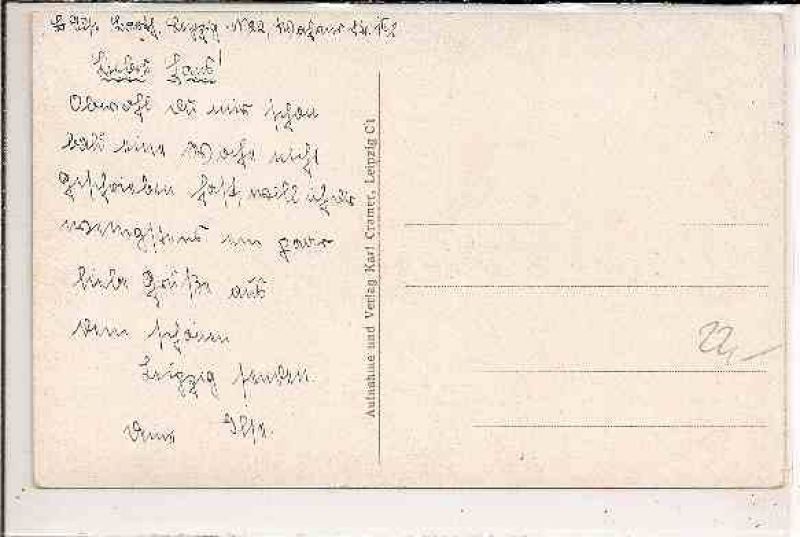 Leipzig N22,
Liebes Hans!
Obwohl du mir schon
bald eine Woche nicht
geschrieben hast, will ich dir
wenigstens ein paar
liebe Grüße aus
dem schönen
Leipzig senden.
Deine Ilse.
Aufnahme und Verlag Karl Cramer, Leipzig C1
22,-